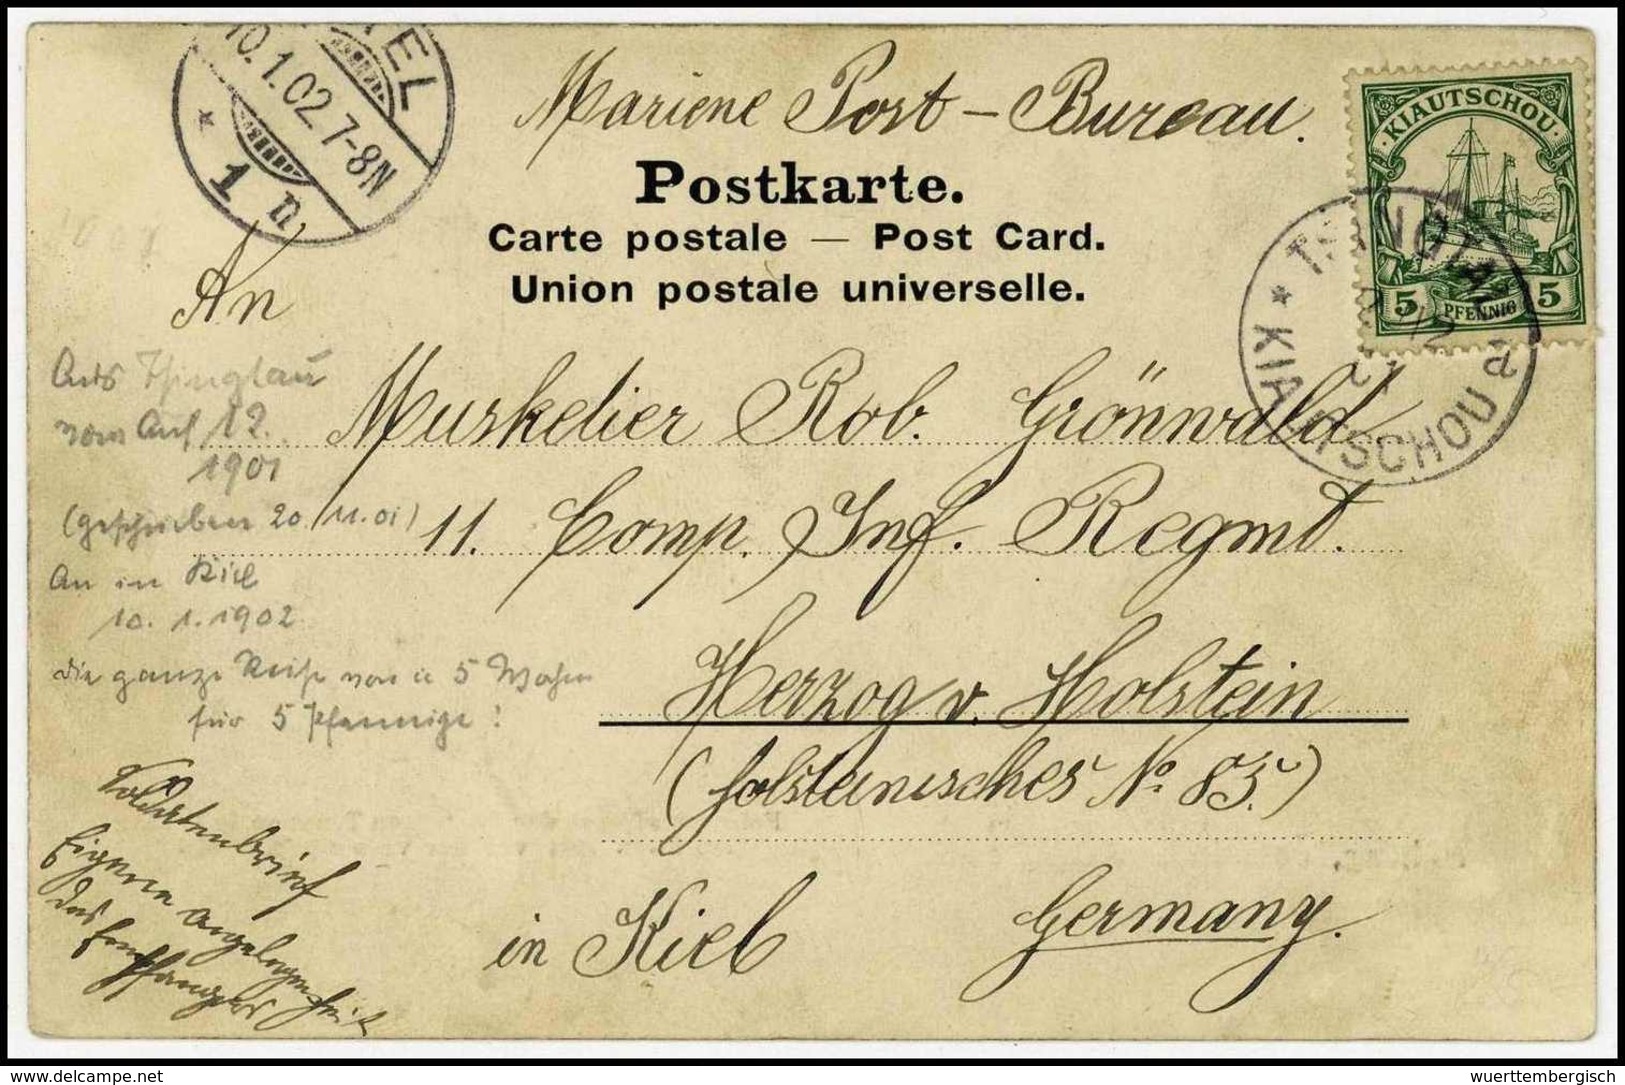 KIEL
10.1.02.7-8N
* 1 n.
Mariene Post-Bureau.
KIAUTSCHOU
5 PFENNIG 5
Postkarte.
Carte postale — Post Card.
Union postale universelle.
* TSINGTAU a
KIAUTSCHOU
An
Aus Tsingtau
vom 12.
1901
(geschrieben 20.11.01)
An in Kiel
10.1.1902
die ganze Reise von 5 Wochen
für 5 Pfennige!
Muskelier Rob. Grönwald
11. Comp. Inf. Regmt.
Herzog v. Holstein
(Holsteinisches No. 85.)
in Kiel Germany.
Soldatenbrief
Eigene Angelegenheit
des Empfängers
wuerttembergisch